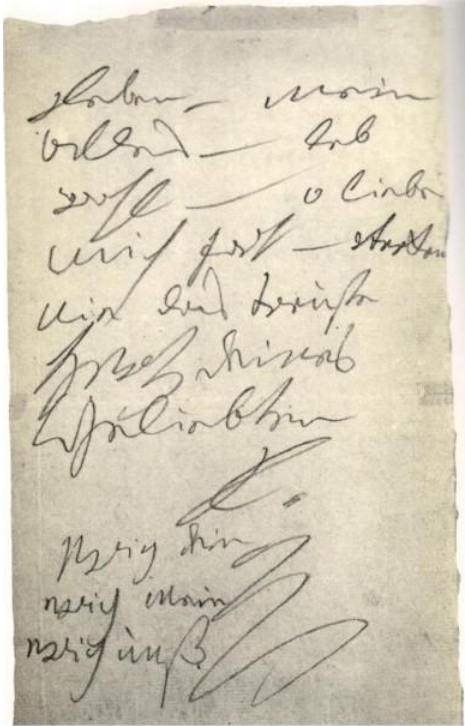 leben – mein
alles – leb
wohl – o liebe
mich fort – verken
nie das treuste
Herz deines
Geliebten
L.
ewig dein
ewig mein
ewig unß